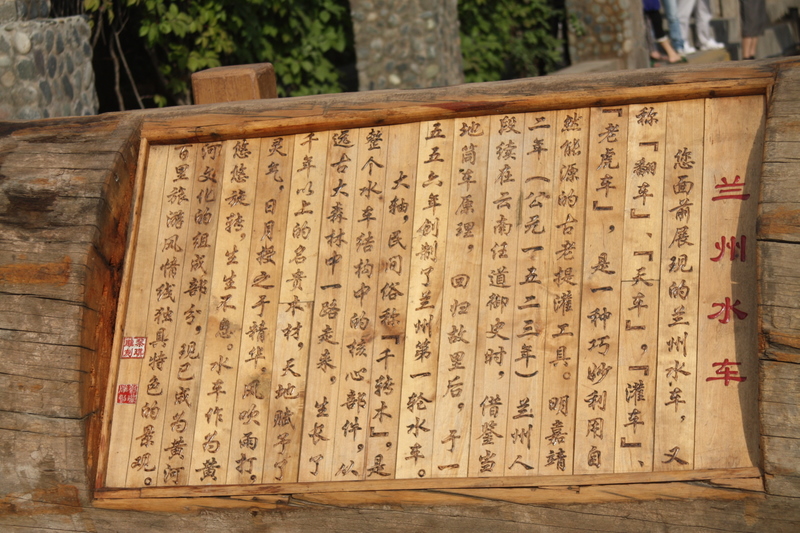 兰州水车
您面前展现的兰州水车，又
称『翻车』、『天车』，『灌车』、
『老虎车』，是一种巧妙利用自
然能源的古老提灌工具。明嘉靖
二年（公元一五二三年）兰州人
段续在云南任道御史时，借鉴当
地筒车原理，回归故里后，于一
五五六年创制了兰州第一轮水车。
大轴，民间俗称『千转木』。是
整个水车结构中的核心部件，从
远古大森林中一路走来，生长了
千年以上的名贵木材，天地赋予了
灵气，日月授之予精华。风吹雨打，
悠悠旋转，生生不息，水车作为黄
河文化的组成部分，现已成为黄河
百里旅游风情线独具特色的景观。